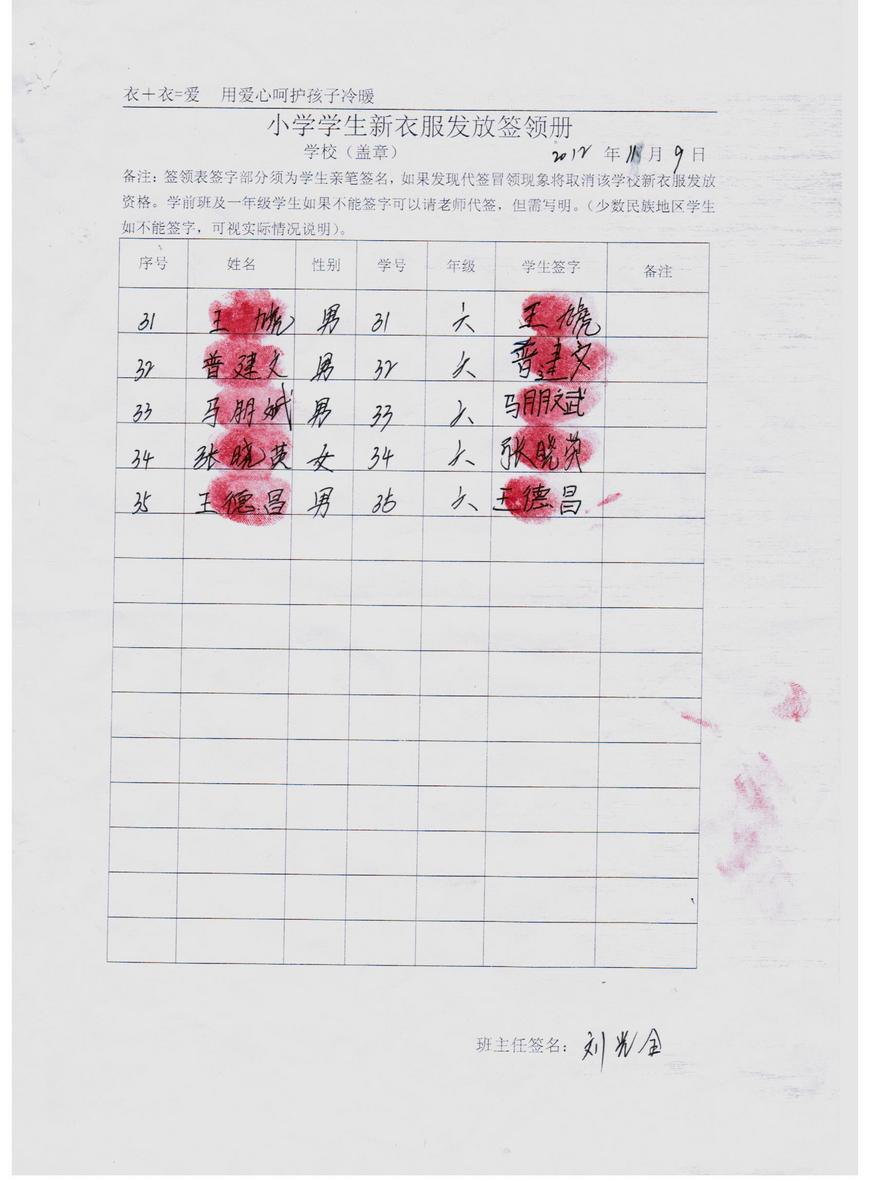 衣+衣=爱 用爱心呵护孩子冷暖
小学学生新衣服发放签领册
学校（盖章） 2012 年 11 月 9 日
备注：签领表签字部分须为学生亲笔签名，如果发现代签冒领现象将取消该学校新衣服发放
资格。学前班及一年级学生如果不能签字可以请老师代签，但需写明。（少数民族地区学生
如不能签字，可视实际情况说明）。
序号 姓名 性别 学号 年级 学生签字 备注
31 王虓 男 31 六 王虓
32 普建文 男 32 六 普建文
33 马朋斌 男 33 六 马朋斌
34 张晓英 女 34 六 张晓英
35 王德昌 男 35 六 王德昌
班主任签名：刘光全